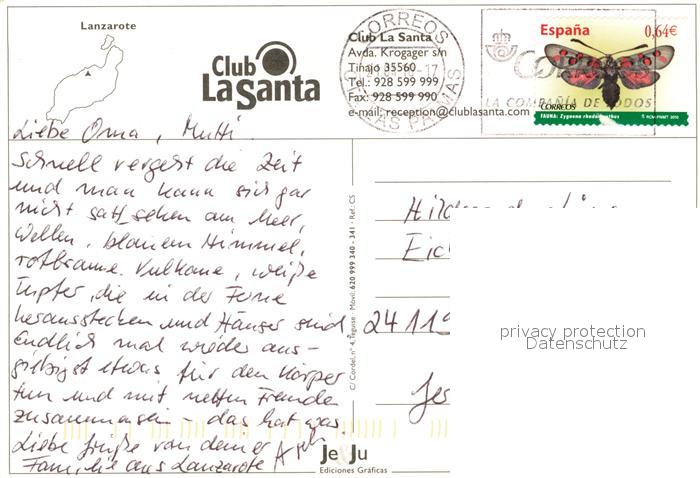 Lanzarote
Club
LaSanta
Club La Santa
Avda. Krogager s/n
Tinajo 35560
Tel.: 928 599 999
Fax: 928 599 990
e-mail: reception@clublasanta.com
CORREOS
LAS PALMAS
LA COMPAÑÍA DE TODOS
España 0,64€
CORREOS
FAUNA: Zygaena rhadamanthus
RCM-FNMT 2010
Liebe Oma, Mutti
Schnell vergeht die Zeit
und man kann sich gar
nicht satt sehen am Meer,
Wellen, blauem Himmel,
rotbraune Vulkane, weiße
Tupfer, die in der Ferne
herausstecken und Häuser sind.
Endlich mal wieder aus-
giebigst etwas für den Körper
tun und mit netten Freunden
zusammensein - das hat was.
Liebe Grüße von deiner
Familie aus Lanzarote
C/ Cordel, nº 4, Teguise · Móvil: 620 999 340 - 341 · Ref.: CS
Eic
2411
Je&Ju
Ediciones Gráficas
privacy protection
Datenschutz